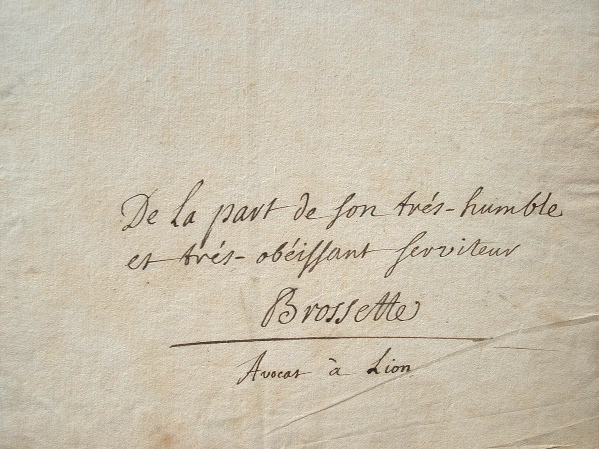 De la part de son trés-humble
et trés-obéissant serviteur
Brossette
Avocat à Lion